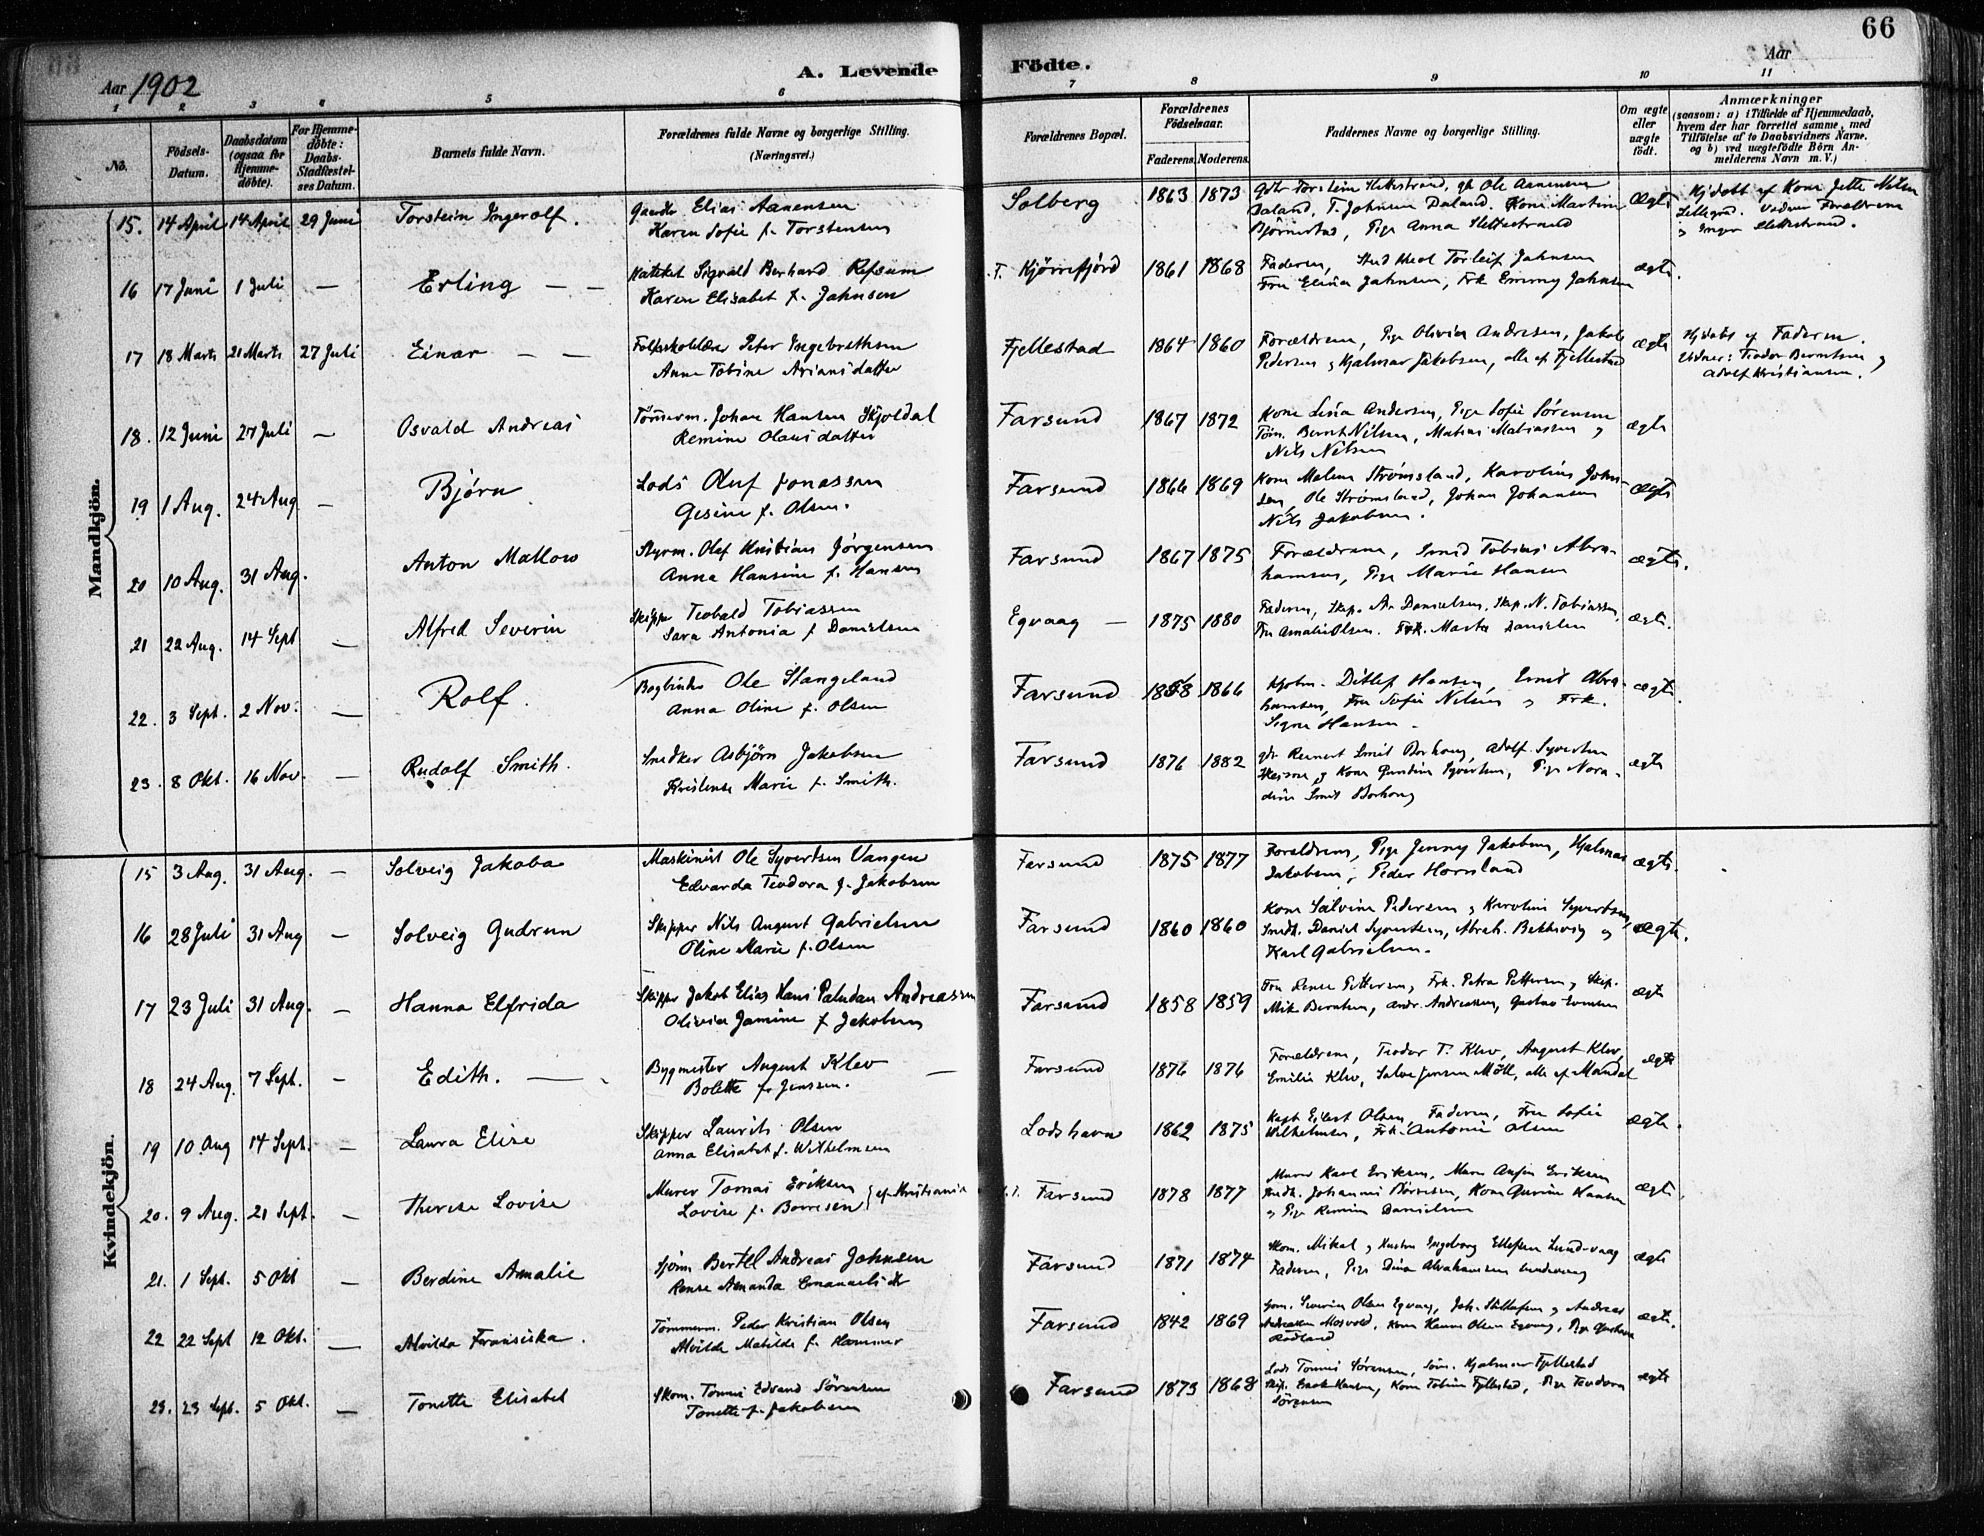 66
Aar 1902
A. Levende Födte.
Aar
1 2 3 4 5 6 7 8 9 10 11
No.
Födsels-Datum.
Daabsdatum (ogsaa for Hjemme-döbte).
For Hjemme-döbte: Daabs-Stadfæstel-ses Datum.
Barnets fulde Navn.
Forældrenes fulde Navne og borgerlige Stilling. (Næringsvei.)
Forældrenes Bopæl.
Forældrenes Födselsaar.
Faderens. Moderens.
Faddernes Navne og borgerlige Stilling.
Om ægte eller uægte födt.
Anmærkninger
(saasom: a) i Tilfælde af Hjemmedaab, hvem der har forrettet samme, med Tilföielse af to Daabsvidners Navne. og b) ved uægtefödte Börn An-melderens Navn m. V.)
Mandkjön.
15. 14 April 14 April 29 Juni Torstein Ingerolf. Elias Aanensen
Karen Sofie f. Torstensen
Solberg 1863 1873 Ole Aanensen
Daland, T. Johnsen Daland. Kone Martine
Pige Anna
Ægte
16 17 Juni 1 Juli — Erling — — Sigvald Berhard Refsum
Karen Elisabet f. Jahnsen
Kjörrefjörd 1861 1868 Faderen, Stud Med Torleif Jahnsen
Fru Elina Jahnsen, Frk Emmy Jahnsen
ægte.
17 18 Marts 21 Marts 27 Juli Einar — — Peter Ingebrethsen
Anne Tobine Ariansdatter
Fjellestad 1864 1860 Forældrene, Pige Olivia Andresen, Jakob
Pedersen og Hjalmar Jakobsen, alle af Fjellestad
ægte Hjdøbt af Faderen.
Vidner: Teodor Berntsen og
Adolf Kristiansen.
18. 12 Juni 27 Juli — Osvald Andreas Tömmerm. Johan Hansen Skjoldal
Remine Olausdatter
Farsund 1867 1872 Kone Lina Andersen, Pige Sofie Sörensen
Töm. Bernt Nilsen, Matias Matiassen og
Nils Nilsen
ægte
19 1 Aug. 24 Aug — Björn Lods Oluf Jonassen
Gesine f. Olsen.
Farsund 1866 1869 Kone Malene Strömsland, Karoline John-
sen, Ole Strömsland, Johan Johansen
Nils Jakobsen.
ægte
20 10 Aug. 31 Aug. Anton Mallow Styrm. Olaf Kristian Jörgensen
Anna Hansine f. Hansen
Farsund 1867 1875 Forældrene, Smed Tobias Abra-
hamsen, Pige Marie Hansen
ægte.
21 22 Aug. 14 Sept — Alfred Severin Skipper Teobald Tobiassen
Sara Antonia f Danielsen
Egvaag — 1875 1880 Faderen, Skip. A. Danielsen, Skip. N. Tobiassen,
Fru Amalie Olsen. Frk. Marta Danielsen
ægte.
22. 3 Sept. 2 Nov. — Rolf. Bogbinder Ole Stangeland
Anna Oline f. Olsen
Farsund 1858 1866 Kjöbm. Ditlef Hansen, Ernst Abra-
hamsen, Fru Sofie Nilsen og Frk.
Signe Hansen.
ægte
23. 8 Okt. 16 Nov. — Rudolf Smith. Snedker Asbjörn Jakobsen
Kristense Marie f. Smith.
Farsund 1876 1882 Reinert Smit Borhoug, Adolf Syvertsen
og Kone Syvertsen, Pige Nora-
dine Smit Borhoug
ægte
Kvindekjön.
15 3 Aug. 31 Aug. — Solveig Jakoba Maskinist Ole Syvertsen Vangen
Edvarda Teodora f. Jakobsen
Farsund 1875 1877 Forældrene, Pige Jenny Jakobsen, Hjalmar
Jakobsen, Peder
ægte.
16 28 Juli 31 Aug — Solveig Gudrun Skipper Nils August Gabrielsen
Oline Marie f. Olsen
Farsund 1860 1860 Kone Salvine Pedersen og Karoline Syvertsen,
Snedk. Daniel Syvertsen, Abrah. og
Karl Gabrielsen.
ægte.
17 23 Juli 31 Aug. — Hanna Elfrida Skipper Jakob Elias Hans Paludan Andreassen
Olivia Jamine f Jakobsen
Farsund 1858 1859 Fru Pettersen, Frk. Petra Pettersen og Skip.
Mik Berntsen, Andr. Andreassen, Gustav
ægte
18 24 Aug. 7 Sept. — Edith. — Bygmester August Klev —
Bolette f. Jenssen.
Farsund 1876 1876 Forældrene, Teodor T. Klev, August Klev,
Emilie Klev, Salve Jensen Möll, alle af Mandal
ægte
19 10 Aug 14 Sept. — Laura Elise Skipper Laurits Olsen
Anna Elisabet f. Wilhelmsen
Lodshavn 1862 1875 Kapt Eilert Olsen, Faderen, Fru Sofie
Wilhelmsen, Frk. Antonie Olsen
ægte.
20. 9 Aug. 21 Sept. — Therese Lovise Murer Tomas Eriksen
Lovise f. Borresen } af Kristiania
Farsund 1878 1877 Murer Karl Eriksen, Eriksen
Snedk. Johannes Börresen, Kone Hansen
og Pige Danielsen
ægte.
21. 1 Sept. 5 Okt — Berdine Amalie Sjöm. Bertel Andreas Johnsen
Amanda Emanuelsdtr
Farsund 1871 1874 Skom. Mikal og Hustru Ingeborg Ellefsen Lundevaag
Faderen, Pige Dina Abrahamsen Lundevaag
ægte
22 22 Sept 12 Okt. — Alvilda Fransiska. Tömmerm. Peder Kristian Olsen
Alvilde Matilde f. Hammer
Farsund 1842 1869 Severin Olsen Egvaag, Joh. og Andreas
Andreassen Mosvold, Kone Hanne Olsen Egvaag, Pige
Rödland
ægte.
23. 23 Sept. 5 Okt. — Tonette Elisabet Skom. Tomas Edvard Sörensen
Tonette f. Jakobsen
Farsund 1873 1868 Lods Tönnes Sörensen, Hjalmar Fjellestad
Hansen, Kone Tobine Fjellestad, Pige Teodora
Sörensen
ægte